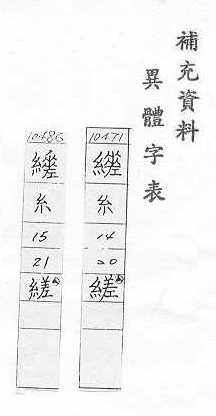 補充資料
異體字表
10471
糸
14
20
縒
10486
糸
15
21
縒